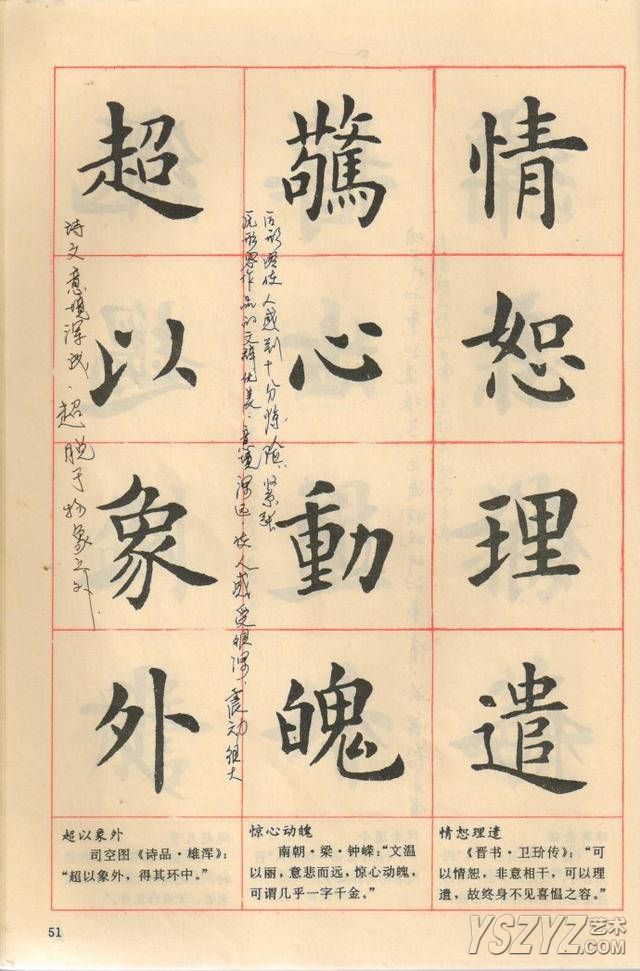 情恕理遣
驚心動魄
后形容使人感到十分惊险、紧张
形容作品的文辞优美、意境深远,使人感受很深、震动很大
超以象外
诗文意境深,超脱于物象之外
情恕理遣
《晋书·卫玠传》:“可
以情恕,非意相干,可以理
遣,故终身不见喜愠之容。”
惊心动魄
南朝·梁·钟嵘:“文温
以丽,意悲而远,惊心动魄,
可谓几乎一字千金。”
超以象外
司空图《诗品·雄浑》:
“超以象外,得其环中。”
51
YSZYZ艺术.com